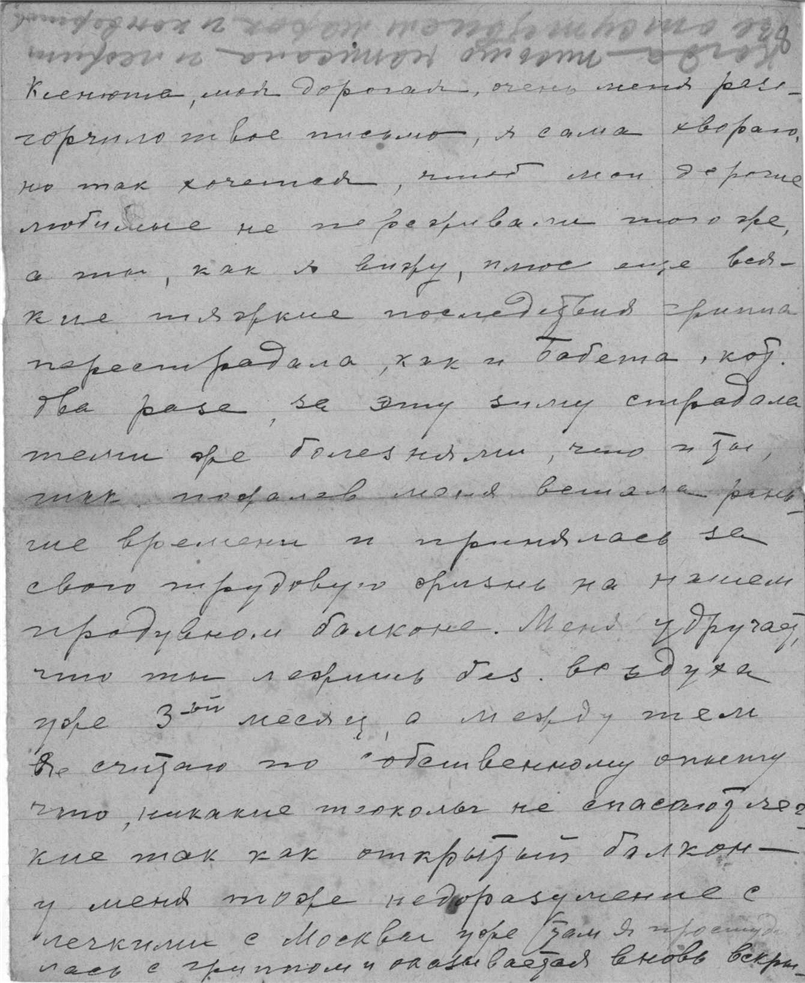 Ксенюша, моя дорогая, очень меня разо-
горчило твое письмо, я сама хвораю,
но так хочется, чтоб мои дорогие
любимые не переживали того же,
а ты, как я вижу, плюс еще вся-
кие тяжкие последствия гриппа
перестрадала, как и Бабета, кот.
два раза, за эту зиму страдала
теми же болезнями, что и ты,
так пожалев меня встала рань-
ше времени и принялась за
свою трудовую жизнь на нашем
продувном балконе. Меня удручает,
что ты лежишь без воздуха
уже 3-ий месяц, а между тем
я считаю по собственному опыту
что, никакие уколы не спасают лег-
кие так как открытый балкон —
у меня тоже недоразумение с
легкими с Москвы уже там я простуди
лась с гриппом и оказывается вновь вскры-
Когда письмо написала и лежит
за отсутствием марок и конвертов